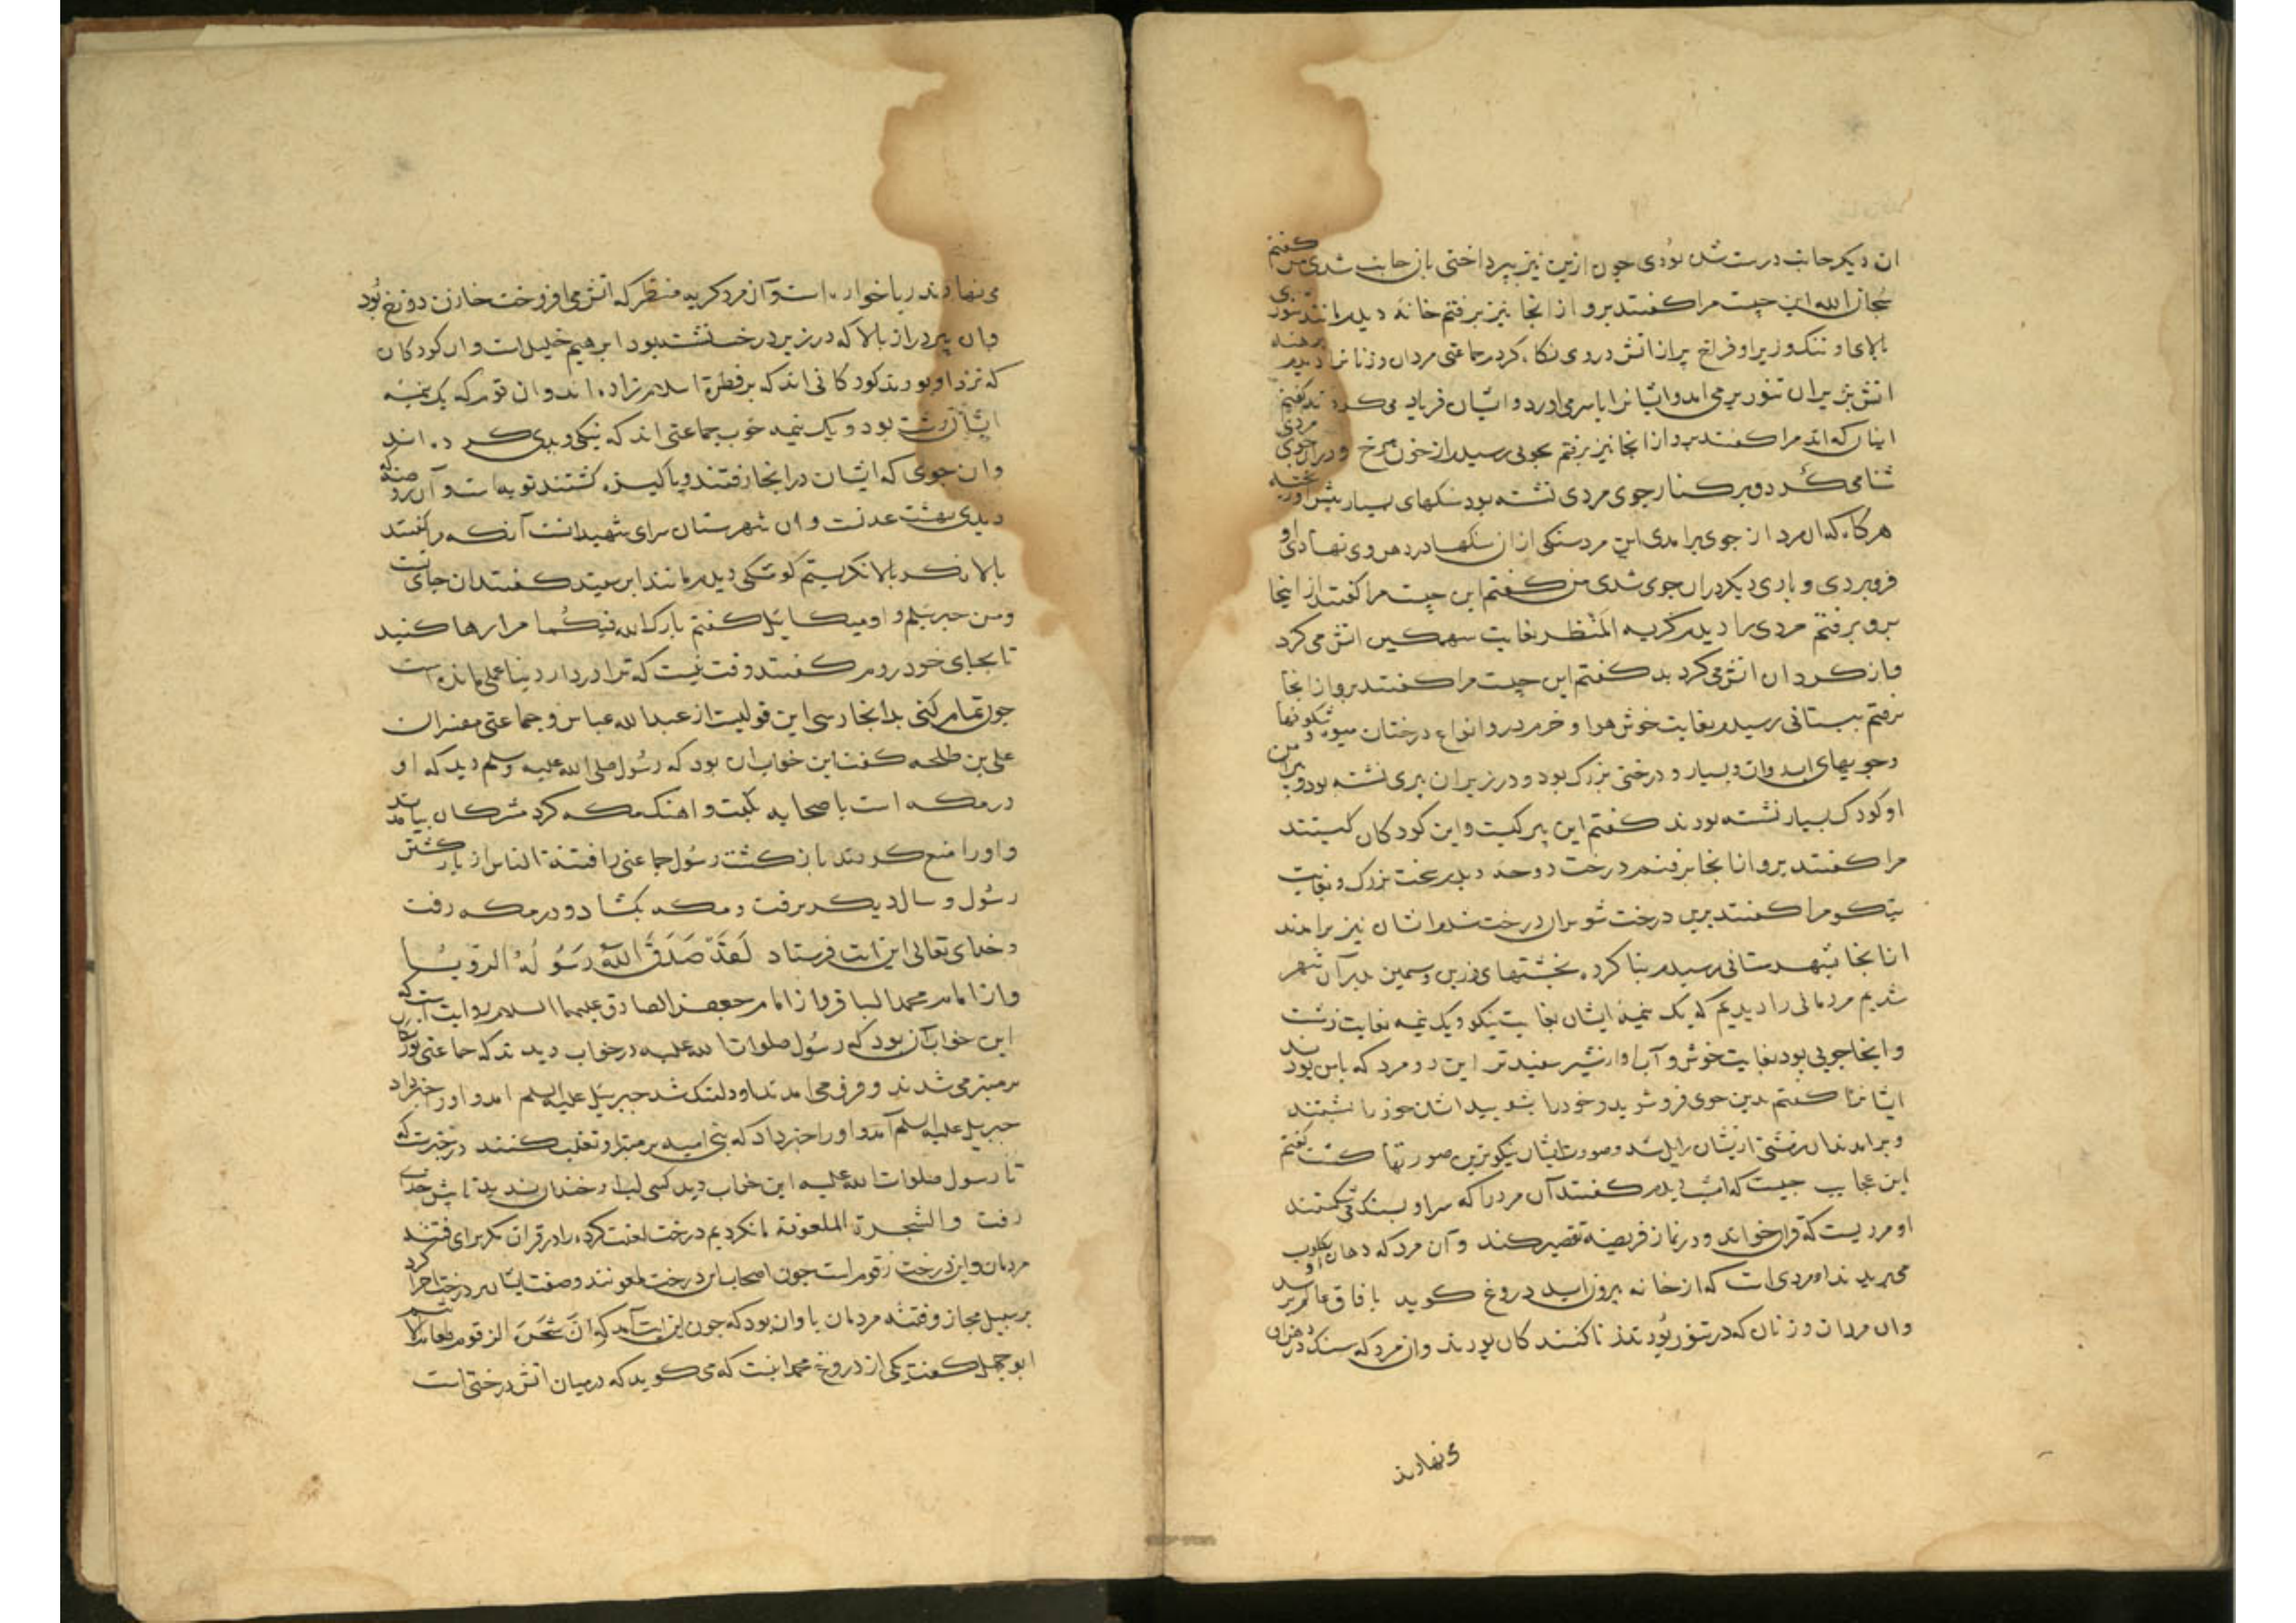 ان دیکر جانب درست شده بودی جون ازین نیز بپرداختی باز جانب شدی من گفتم
سُبحان الله این چیست مرا کفتند برو از انجا نیز برفتم خانهٔ دیدم مانند تنوری
بالای او تنک و زیر او فراخ پر از اتش در وی نکاه کردم جماعتی مردان و زنان را برهنه دیدم
اتش بزیر ان تنور بر می امد و ایشانرا با سر می اورد و ایشان فریاد می کردند کفتم
اینان که اند مرا کفتند برو از انجا نیز برفتم بجویی رسیدم از خون سرخ و در ان جوی مردی
شنا می کرد و بر کنار جوی مردی نشسته بود سنکهای بسیار پیش اورده
هر کاه که ان مرد از جوی برامدی این مرد سنکی از ان سنکها در دهن وی نهادی او
فرو بردی و باری دیکر در ان جوی شدی من کفتم این چیست مرا کفتند از اینجا
برو برفتم مردی را دیدم کریه المَنْظر بغایت سهمکین اتش می کرد
کفتم این چیست مرا کفتند برو از انجا
برفتم ببستانی رسیدم بغایت خوش هوا و خرم در و انواع درختان میوه و شکوفها
و جویهای اب روان و بسیار و درختی بزرک بود و در زیر ان پیری نشسته بود و پیرامن
او کودک بسیار نشسته بودند کفتم این پیر کیست و این کودکان کیستند
مرا کفتند برو از انجا برفتم درخت دوحه دیدم سخت بزرک و بغایت
نیکو مرا کفتند برین درخت شو بران درخت شدم و ایشان نیز برامدند
از انجا بشهرستانی رسیدم بنا کرده بخشتهای زرین و سیمین بدر آن شهر
شدیم مردمانی را دیدیم که یک نیمهٔ ایشان بغایت نیکو و یک نیمه بغایت زشت
و اینجا جویی بود بغایت خوش و آب او از شیر سفیدتر این دو مرد که با من بودند
ایشانرا کفتند بدین جوی فرو شوید و خود را بشویید ایشان خود را بشستند
و برامدند ان زشتی از یشان زایل شد و صورت ایشان نیکوترین صورتها کشت کفتم
این عجایب چیست که امشب دیدم کفتند آن مرد را که سر او بسنک می شکستند
او مردیست که قران خواند و در نماز فریضه تقصیر کند و آن مرد که دهان او بکلوب
می دریدند او مردی است که از خانه بیرون اید دروغ کوید بافاق عالم برسد
وان مردان و زنان که در تنور بُودند زناکنندکان بودند وان مرد که سنک در دهن او
می نهادند
می نهادند ربا خواره است و آن مرد کریه منظر که اتش می افروخت خازن دوزخ بُود
وان پیر دراز بالا که در زیر درخت نشسته بود ابرهیم خلیل است وان کودکان
که نزد او بودند کودکانی اند که بر فطرة اسلام زاده اند و ان قوم که یک نیمهٔ
ایشان زشت بود و یک نیمه خوب جماعتی اند که نیکی و بدی کرده اند
وان جوی که ایشان در انجا رفتند و پاکیزه کشتند توبه است و آن روضه که
دیدی بهشت عدنست و ان شهرستان سرای شهیدانست آنکه مرا کفتند
بالا نکر بالا نکریستم کوشکی دیدم مانند ابر سپید کفتند ان جای تست
و من جبریلم و او میکائیل کفتم بارک الله فیکُما مرا رها کنید
تا بجای خود روم کفتند وقت نیست که ترا در دار دنیا عملی مانده است
جون تمام کنی بدانجا رسی این قولیست از عبدالله عباس و جماعتی مفسران
علی بن طلحه کفت این خواب ان بود که رسُول صلی الله علیه وسلم دید که او
در مکه است با صحابه بکیت و اهنک مکه کرد مشرکان بیامدند
و او را منع کردند باز کشت رسُول جماعتی را فتنة للناس از باز کشتن
رسُول و سال دیکر برفت و مکه بکشاد و در مکه رفت
و خدای تعالی این ایت فرستاد لَقَدْ صَدَقَ اللهُ رَسُولَهُ الرؤیا
و از امام محمد الباقر و از امام جعفر الصادق علیهما السلام روایت است که
این خواب آن بود که رسُول صلوات الله علیه در خواب دید که جماعتی بوزنکان
بر منبر می شدند و فرو می امدند او دلتنک شد جبریل علیه السلم امد و او را خبر داد
جبریل علیه السلم آمد و او را خبر داد که بنی امیه بر منبر او تغلب کنند در خبرست که
تا رسول صلوات الله علیه این خواب دید کسی لب او خندان ندید تا پیش خدای
رفت و الشجرة الملعونة ما نکردیم درخت لعنت کرده را در قران مکر برای فتنه
مردمان و این درخت زقوم است جون اصحاب این درخت ملعونند وصفت ایشان بر درخت اجرا کرد
بر سبیل مجاز و فتنه مردمان با وان بود که جون این ایت آمد که اِنَّ شَجَرَة الزقوم طعام الاثیم
ابوجهل کفت یکی از دروغ محمد اینست که می کوید که در میان اتش درختی است